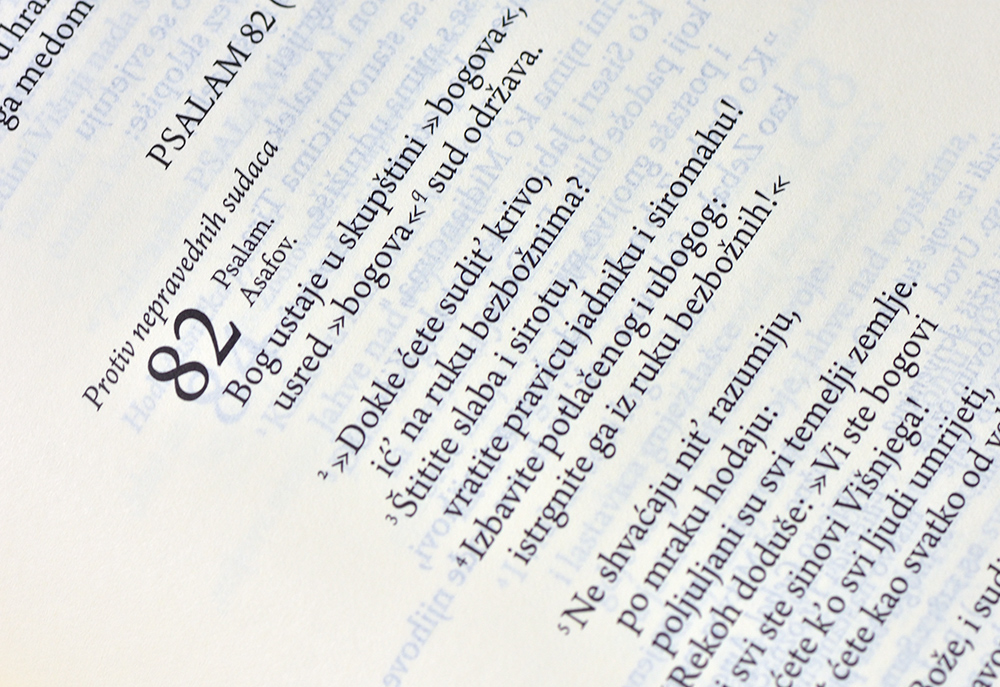 ga medom
PSALAM 82 (
Protiv nepravednih sudaca
82
Psalam.
Asafov.
Bog ustaje u skupštini »bogova«,
usred »bogova«q sud održava.
2 »Dokle ćete sudit’ krivo,
ić’ na ruku bezbožnima?
3 Štitite slaba i sirotu,
vratite pravicu jadniku i siromahu!
4 Izbavite potlačenog i ubogog:
istrgnite ga iz ruku bezbožnih!«
5 Ne shvaćaju nit’ razumiju,
po mraku hodaju:
poljuljani su svi temelji zemlje.
Rekoh doduše: »Vi ste bogovi
i svi ste sinovi Višnjega!
ćete k’o svi ljudi umrijeti,
ćete kao svatko od
i